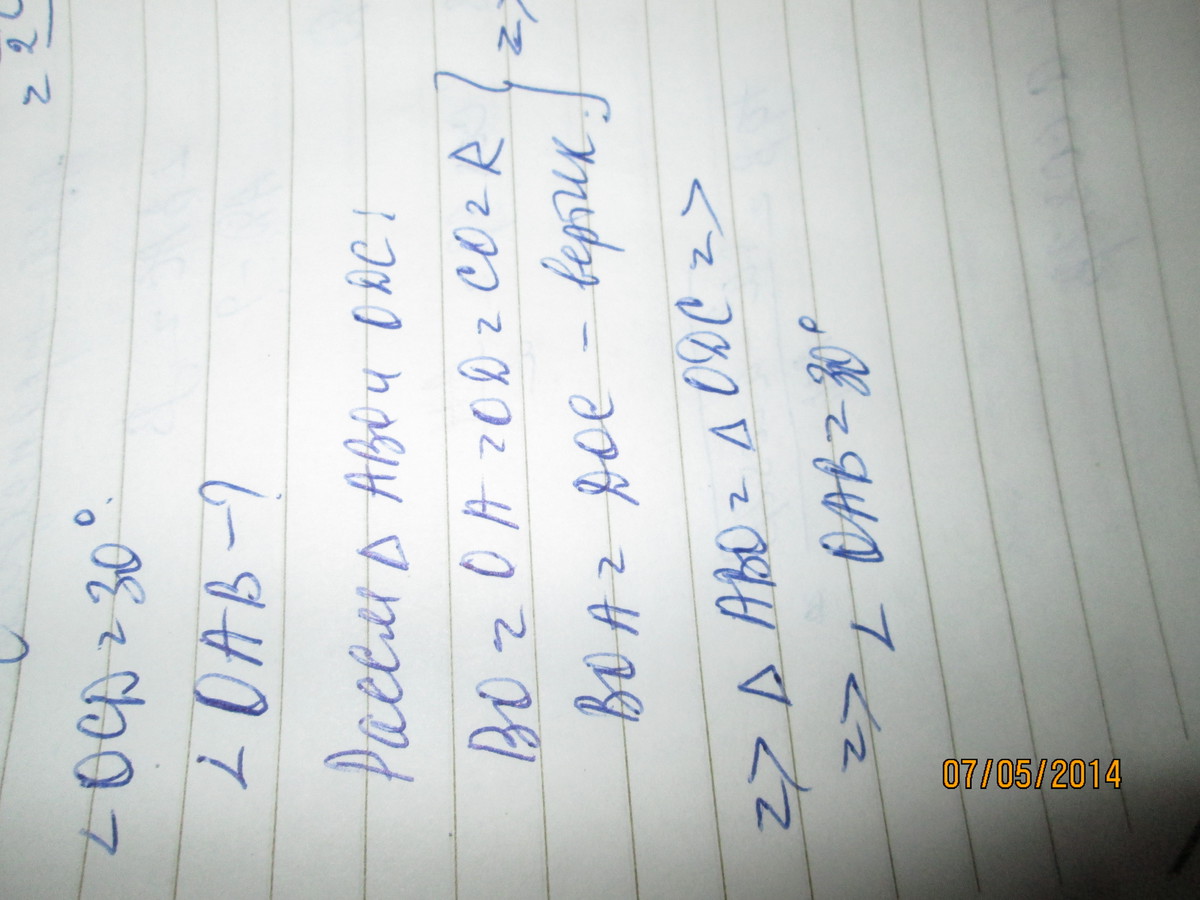 = 2
∠ OCD = 30°.
∠ OAB - ?
Рассм Δ ABO и ODC:
BO = OA = OD = CO = R } =>
BOA = DOC - вертик.
=> Δ ABO = Δ ODC =>
=> ∠ OAB = 30°
07/05/2014